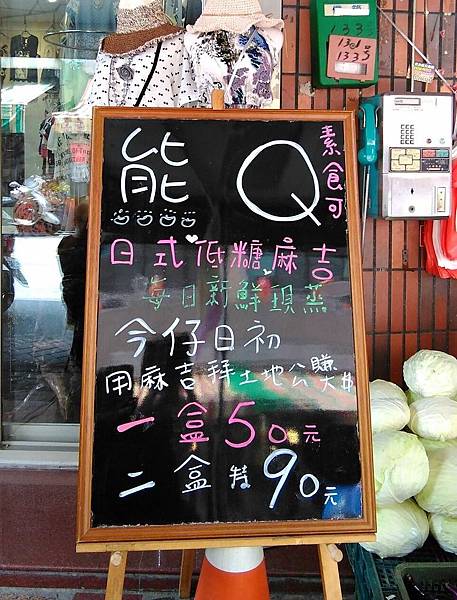 133
131号
133号
熊Q
素食可
日式低糖麻吉
每日新鮮現蒸
今仔日初
用麻吉拜土地公賺大$
一盒50元
二盒特90元